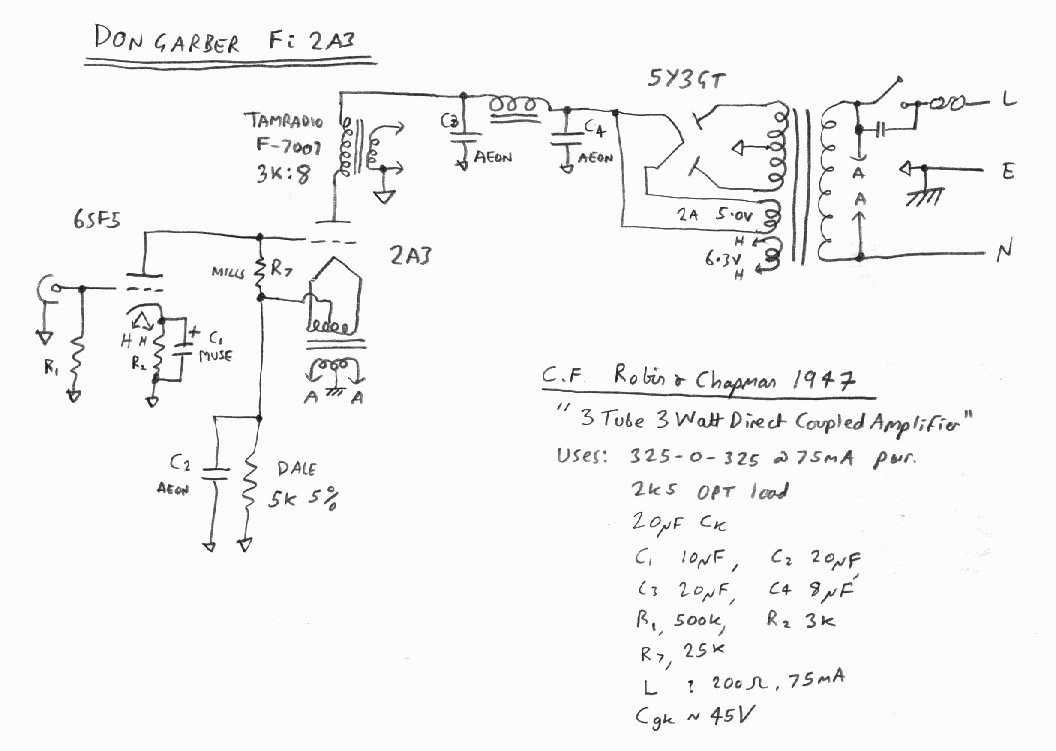 DON GARBER Fi 2A3
5Y3GT
TAMRADIO
F-7007
3K:8
C3
AEON
C4
AEON
L
A
E
A
2A 5.0V
H
6.3V
H
N
6SF5
2A3
MILLS R7
R1
H H
R2
+
C1
MUSE
A A
C2
AEON
DALE
5K 5%
C.F Robin & Chapman 1947
"3 Tube 3 Watt Direct Coupled Amplifier"
Uses: 325-0-325 @ 75mA pwr.
2K5 OPT load
20µF CK
C1 10µF, C2 20µF
C3 20µF, C4 8µF
R1, 500K, R2 3K
R7, 25K
L ? 200Ω, 75mA
Cgk ~ 45V